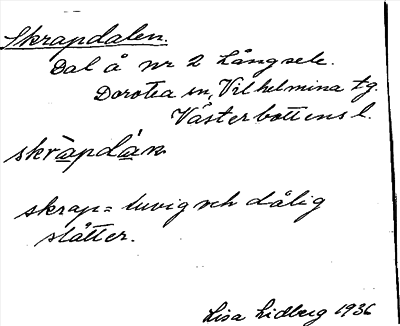 Skrapdalen.
Dal å nr 2 Långsele.
Dorotea sn, Vilhelmina tg.
Västerbottens l.
skràpdàn
skrap = tuvig och dålig
slåtter.
Lisa Lidberg 1936